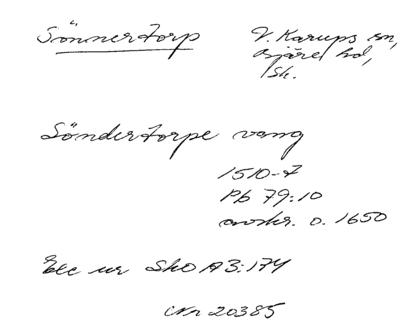 Sönnertorp
V. Karups sn,
Bjäre hd,
Sk.
Söndertorpe vang
1510-t
Pb 79:10
avskr. o. 1650
Exc ur SkO A3:174
Nr 20385